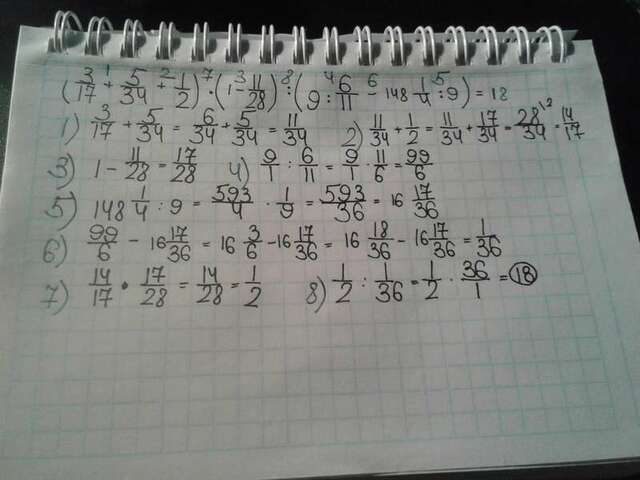 (3/17 +¹ 5/34 +² 1/2) ·⁷ (1 -³ 11/28) :⁸ (9 :⁴ 6/11 -⁶ 148 1/4 :⁵ 9) = 18
1) 3/17 + 5/34 = 6/34 + 5/34 = 11/34 2) 11/34 + 1/2 = 11/34 + 17/34 = 28/34 \² = 14/17
3) 1 - 11/28 = 17/28 4) 9/1 : 6/11 = 9/1 · 11/6 = 99/6
5) 148 1/4 : 9 = 593/4 · 1/9 = 593/36 = 16 17/36
6) 99/6 - 16 17/36 = 16 3/6 - 16 17/36 = 16 18/36 - 16 17/36 = 1/36
7) 14/17 · 17/28 = 14/28 = 1/2 8) 1/2 : 1/36 = 1/2 · 36/1 = 18